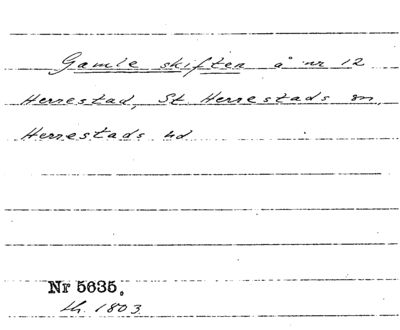 Gamle skiften å nr 12
Herrestad, St Herrestads sn,
Herrestads hd
Nr 5635.
th. 1803